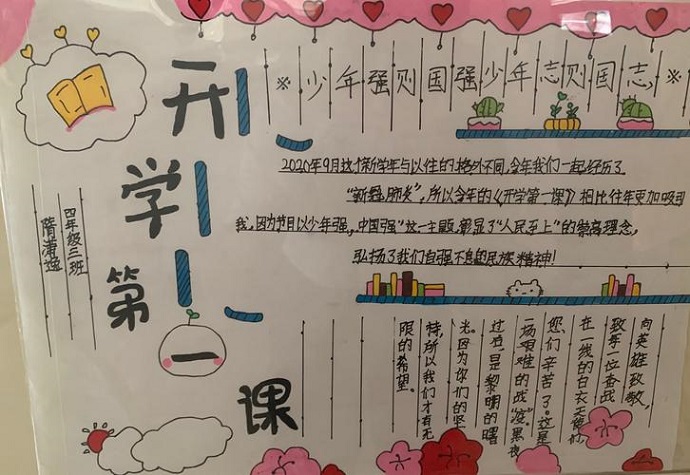 开学第一课
※少年强则国强少年志则国志,※
2020年9月这个新学年与以往的格外不同,今年我们一起经历了
"新冠肺炎",所以今年的《开学第一课》相比往年更加吸引
我,因为节目以少年强,中国强"这一主题,彰显了"人民至上"的崇高理念,
弘扬了我们自强不息的民族精神!
四年级三班
隋清逸
向英雄致敬,
致每一位奋战
在一线的白衣天使们,
您们辛苦了。这是
一场艰难的战"疫"黑夜
过后,是黎明的曙
光。因为你们的坚
持,所以我们才有无
限的希望。